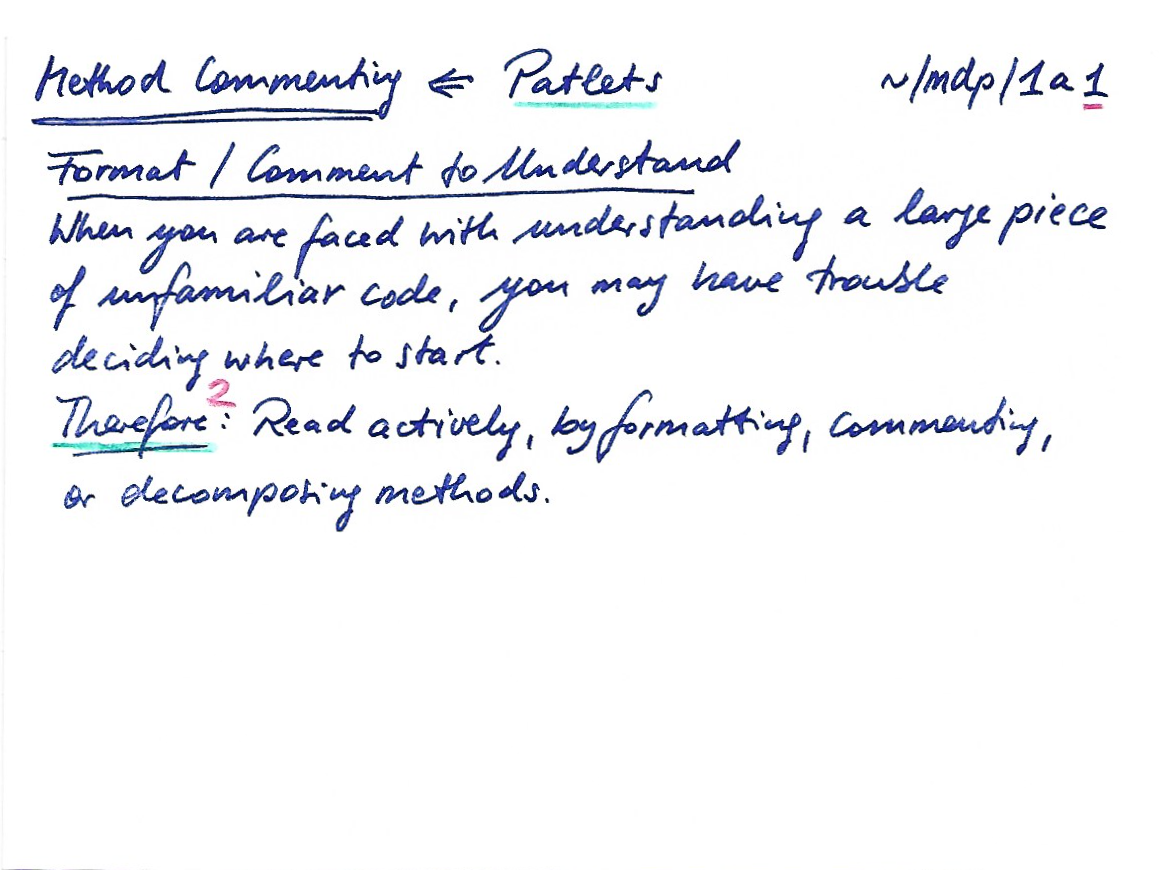 Method Commenting ⇐ Patlets ~/mdp/1a1
Format / Comment to Understand
When you are faced with understanding a large piece
of unfamiliar code, you may have trouble
deciding where to start.
Therefore²: Read actively, by formatting, commenting,
or decomposing methods.